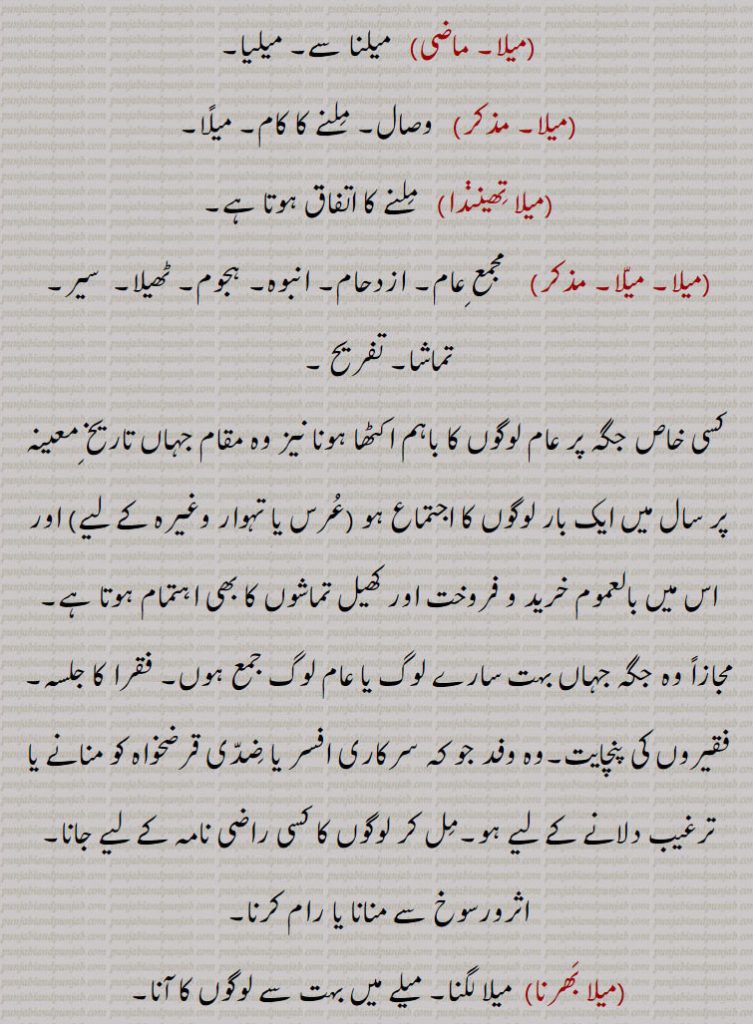 (میلا۔ ماضی) میلنا سے۔ میلیا۔
(میلا۔ مذکر) وصال۔ مِلنے کا کام۔ میلًا۔
(میلا تِھیندا) مِلنے کا اتفاق ہوتا ہے۔
(میلا۔ میلّا۔ مذکر) مجمعِ عام۔ ازدحام۔ انبوہ۔ ہجوم۔ ٹھیلا۔ سیر۔
تماشا۔ تفریح ۔
کسی خاص جگہ پر عام لوگوں کا باہم اکٹھا ہونا نیز وہ مقام جہاں تاریخِ معینہ
پر سال میں ایک بار لوگوں کا اجتماع ہو (عُرس یا تہوار وغیرہ کے لیے) اور
اس میں بالعموم خرید و فروخت اور کھیل تماشوں کا بھی اہتمام ہوتا ہے۔
مجازاً وہ جگہ جہاں بہت سارے لوگ یا عام لوگ جمع ہوں۔ فقرا کا جلسہ۔
فقیروں کی پنچایت۔ وہ وفد جو کہ سرکاری افسر یا ضِدّی قرضخواہ کو منانے یا
ترغیب دلانے کے لیے ہو۔ مِل کر لوگوں کا کسی راضی نامہ کے لیے جانا۔
اثرورسوخ سے منانا یا رام کرنا۔
(میلا بَھرنا) میلا لگنا۔ میلے میں بہت سے لوگوں کا آنا۔